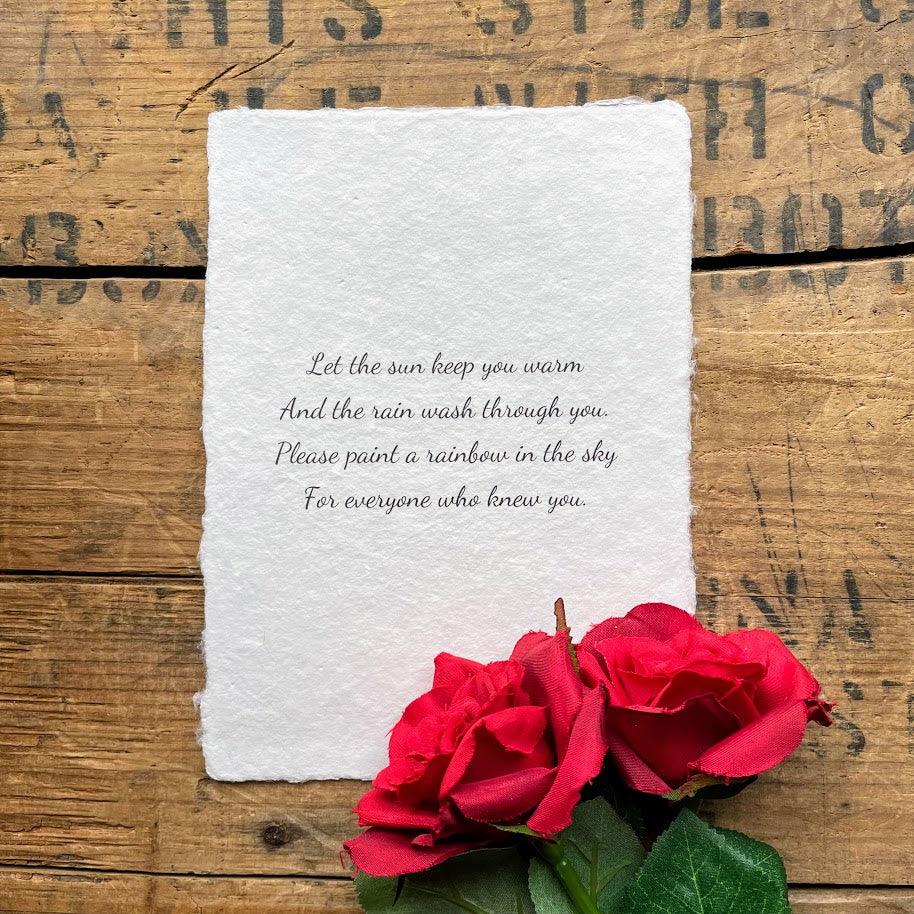 Let the sun keep you warm
And the rain wash through you.
Please paint a rainbow in the sky
For everyone who knew you.